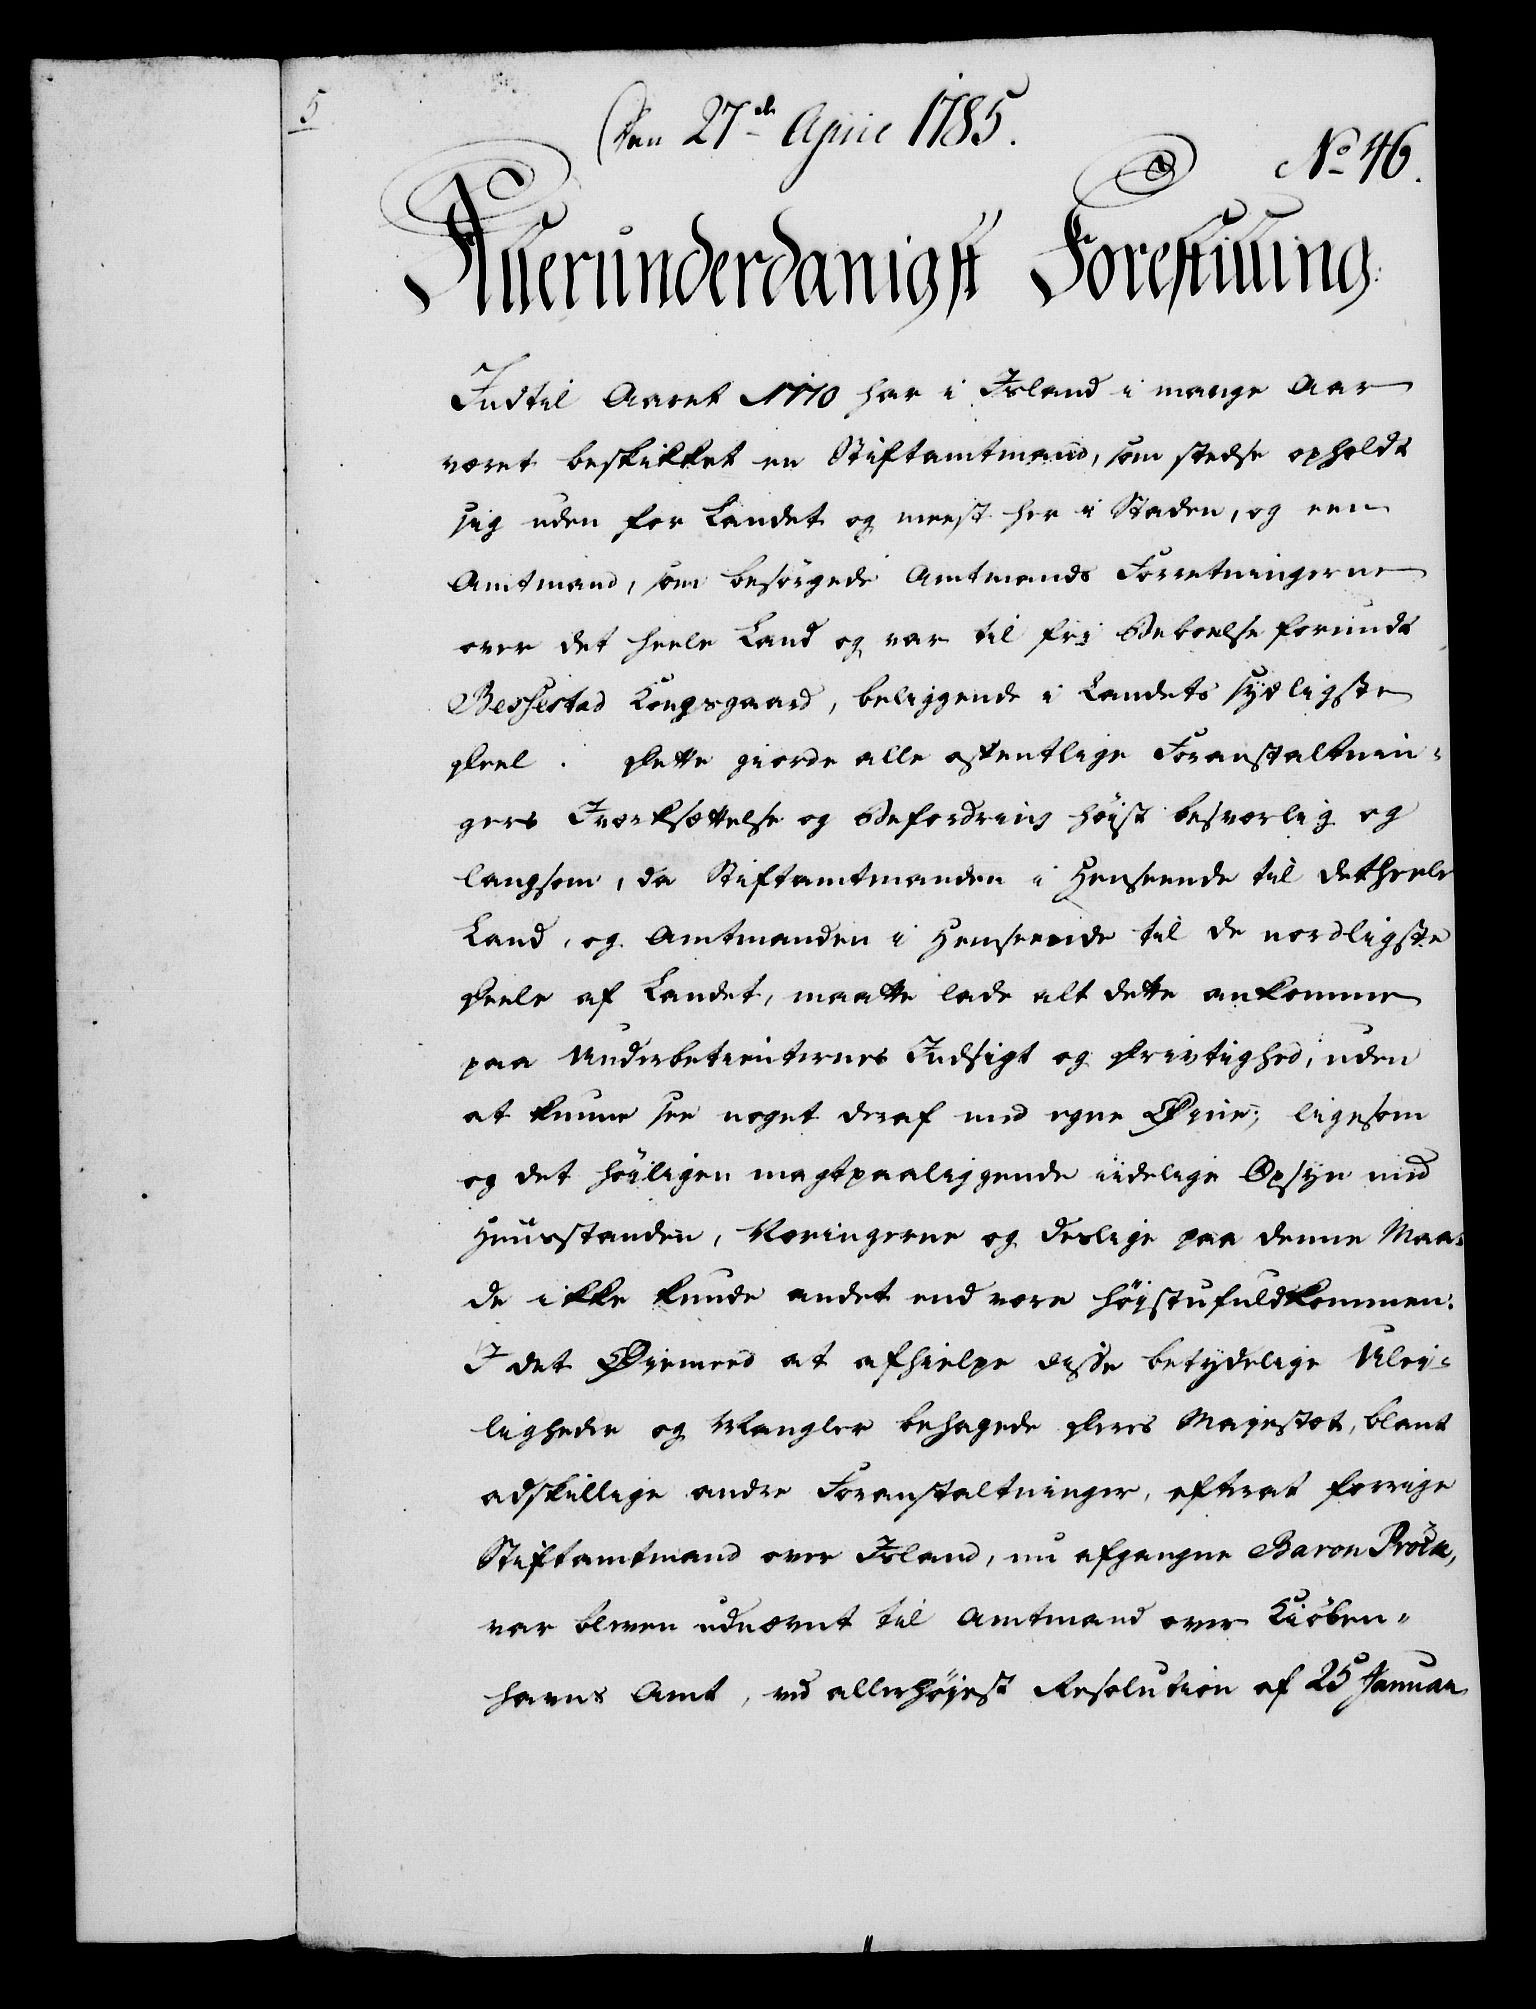 5
Den 27de April 1785.
No 46.
Allerunderdanigst Forestilling.
Indtil Aaret 1770 har i Island i mange Aar
været beskikket en Stiftamtmand, som stedse opholdt
sig uden for Landet og meest her i Staden, og een
Amtmand, som besörgede Amtmands Forretningerne
over det heele Land og var til fri Beboelse forundt
Bessestad Kongsgaard, beliggende i Landets sydligste
Deel. Dette giorde alle offentlige Foranstaltnin-
gers Iværksættelse og Befordring höist besværlig og
langsom, da Stiftamtmanden i Henseende til det heele
Land, og Amtmanden i Henseende til de nordligste
Deele af Landet, maatte lade alt dette ankomme
paa Underbetienternes Indsigt og Drivtighed, uden
at kunne see noget deraf med egne Øine; ligesom
og det höiligen magtpaaliggende iidelige Opsyn med
Huusstanden, Næringerne og deslige paa denne Maa-
de ikke kunde andet end være höist ufuldkommen.
I det Øiemeed at afhielpe disse betydelige Ulei-
ligheder og Mangler behagede Deres Majestæt, blant
adskillige andre Foranstaltninger, efterat forrige
Stiftamtmand over Island, nu afgangne Baron Pröck,
var bleven udnævnt til Amtmand over Kiöben-
havns Amt, ved allerhöjest Resolution af 25 Januar